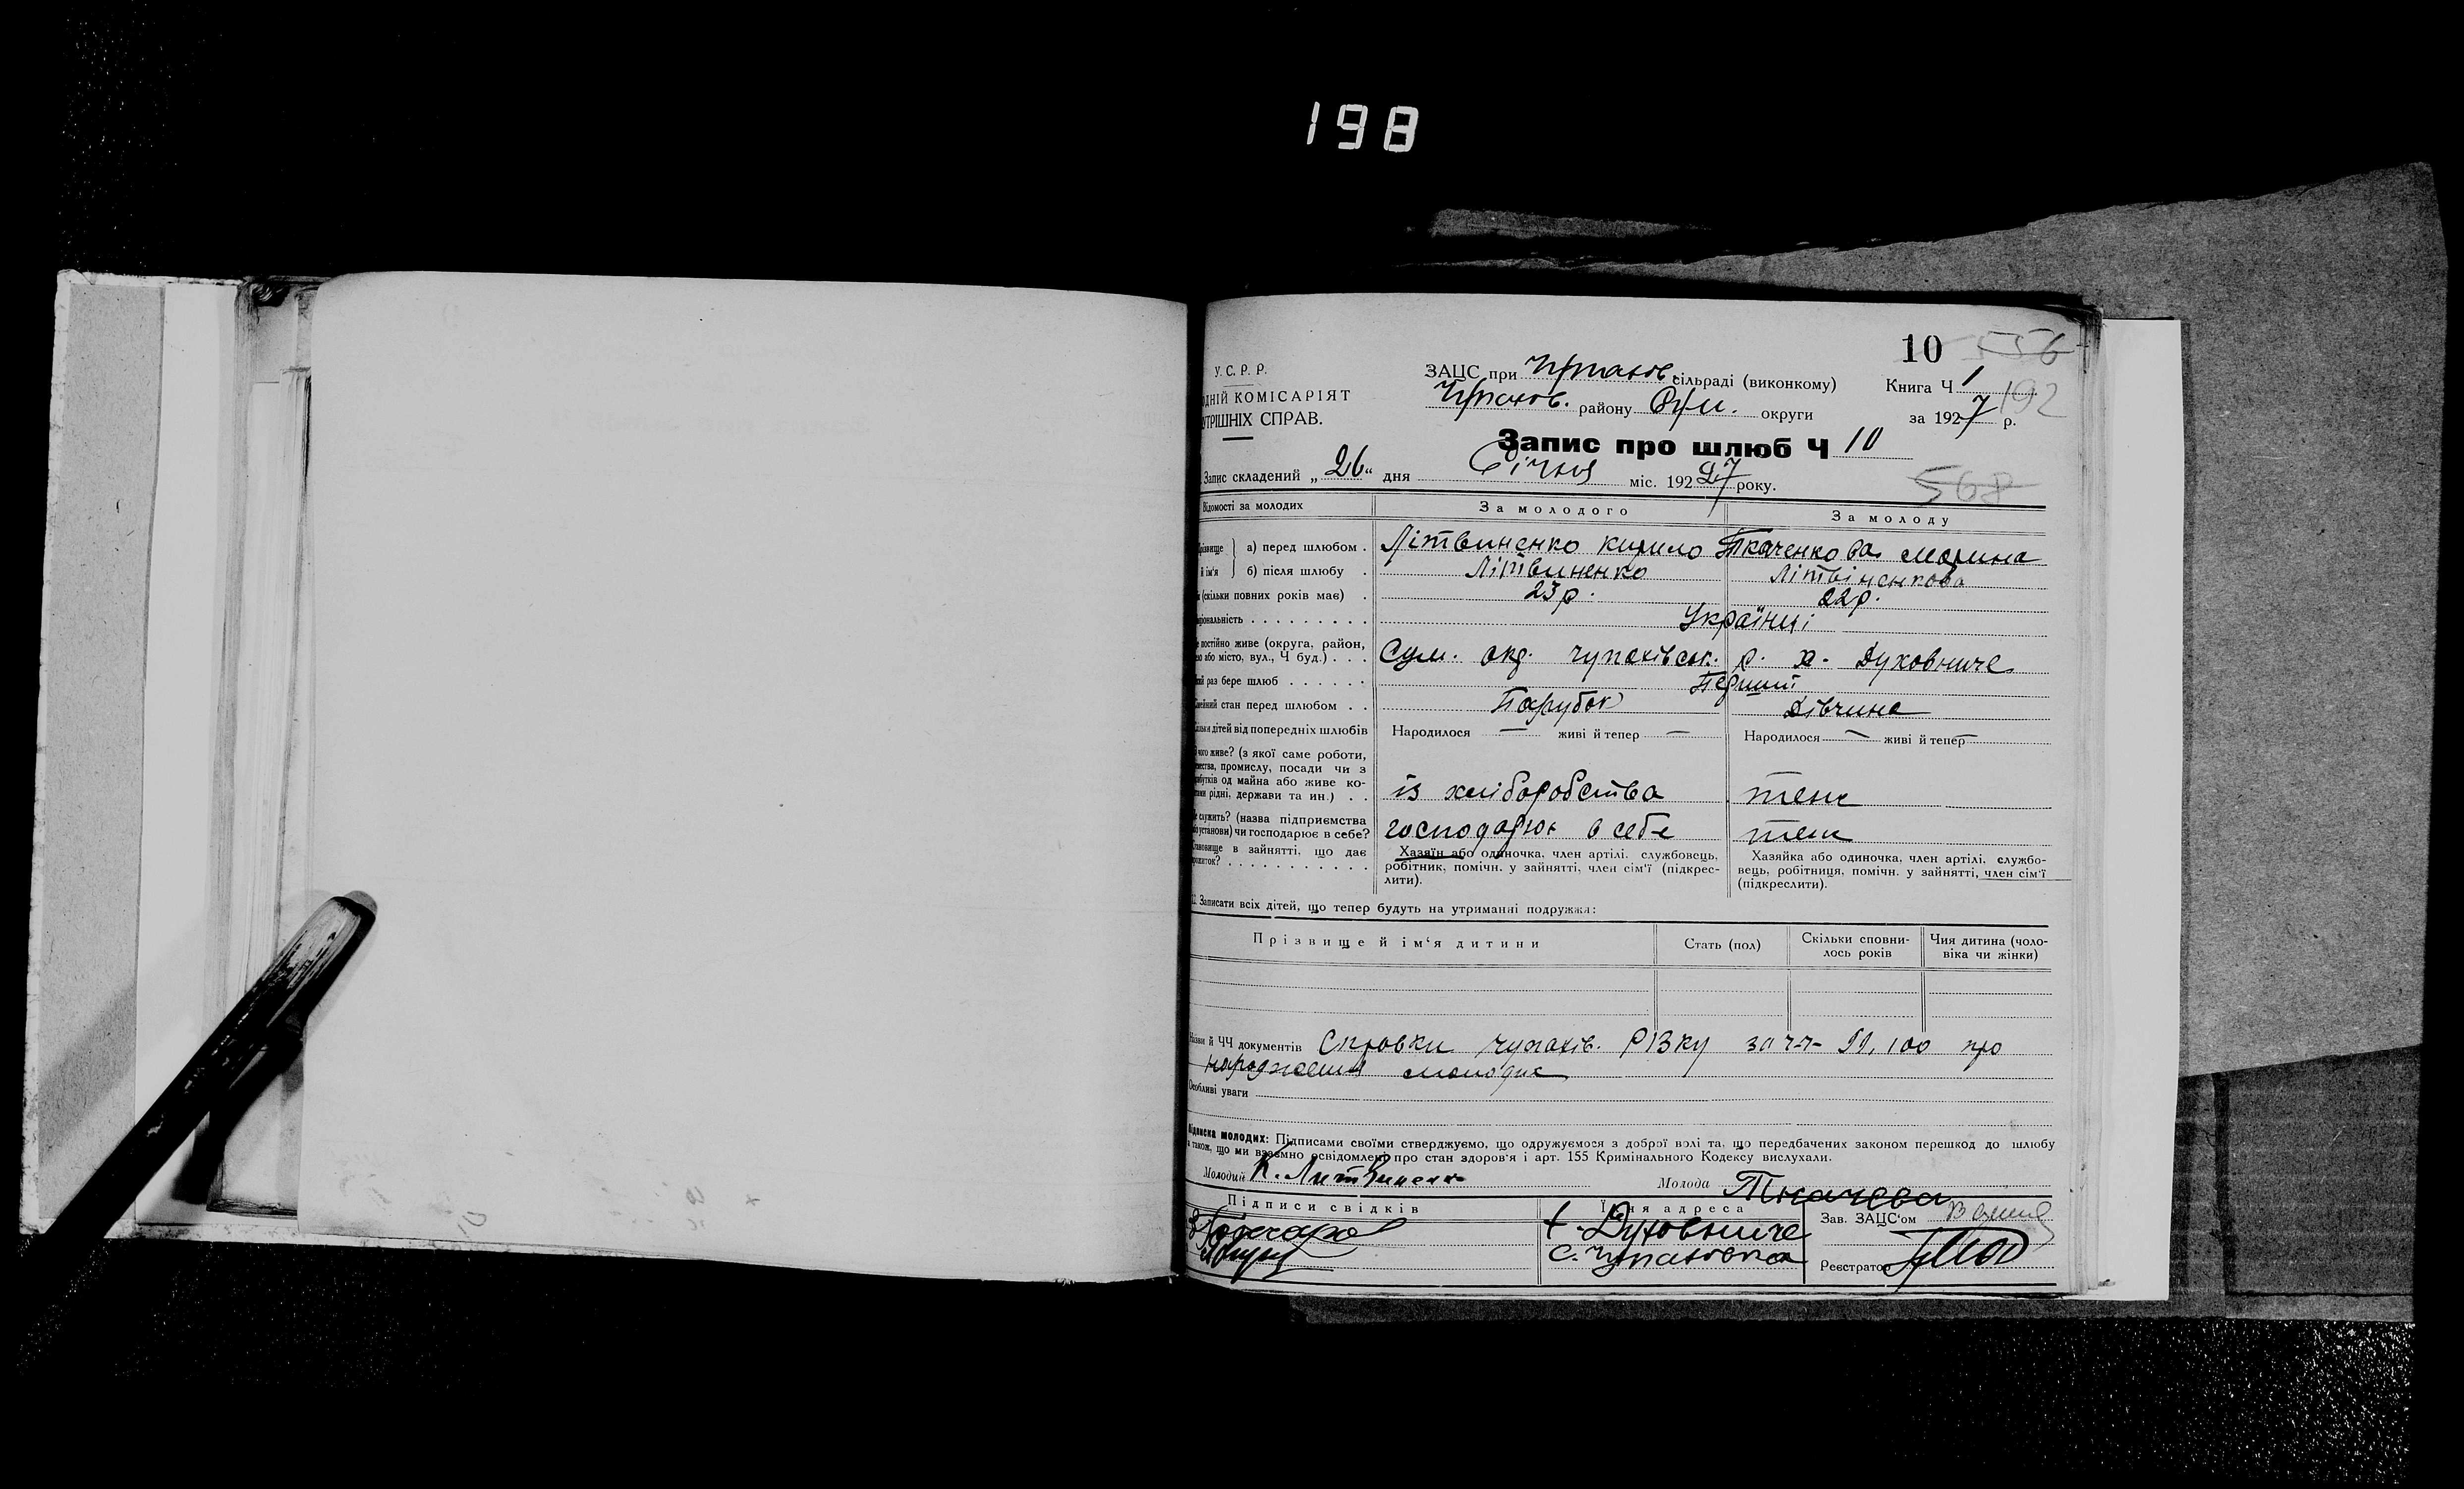 198
10 556
У. С. Р. Р.
ДНІЙ КОМІСАРІЯТ
УТРІШНІХ СПРАВ.
ЗАЦС при Чупахов. сільраді (виконкому)
Чупахов. району Сум. округи
Книга Ч 1
за 1927 р. 192
Запис про шлюб Ч 10
Запис складений „26“ дня Січня міс. 1927 року.
568
Відомості за молодих За молодого За молоду
Прізвище й ім'я а) перед шлюбом . Літвиненко Кирило Ткаченкова Марина
б) після шлюбу . Літвиненко Літвіненкова
(скільки повних років має) . 23 р. 22 р.
ціональність . . . . . . . . . Українці
постійно живе (округа, район,
або місто, вул., Ч буд.) . . . Сум. окр. Чупахівськ. р. х. Духовниче
раз бере шлюб . . . . . . Перший
мейний стан перед шлюбом . . Парубок Дівчина
ільки дітей від попередніх шлюбів Народилося — живі й тепер — Народилося — живі й тепер —
чого живе? (з якої саме роботи,
промислу, посади чи з
бутків од майна або живе ко-
рідні, держави та ин.) . . із хліборобства теж
служить? (назва підприємства
установи) чи господарює в себе? господарює в себе теж
тановище в зайнятті, що дає
прожиток? . . . . . . . . . . .
Хазяїн або одиночка, член артілі, службовець,
робітник, помічн. у зайнятті, член сім'ї (підкрес-
лити).
Хазяйка або одиночка, член артілі, службо-
вець, робітниця, помічн. у зайнятті, член сім'ї
(підкреслити).
12. Записати всіх дітей, що тепер будуть на утриманні подружжя:
Прізвище й ім'я дитини Стать (пол) Скільки сповни-
лось років Чия дитина (чоло-
віка чи жінки)
Назви й ЧЧ документів Справки Чупахів. РВКу за ч-ч 99, 100 про
народження молодих
Особливі уваги
Підписка молодих: Підписами своїми стверджуємо, що одружуємося з доброї волі та, що передбачених законом перешкод до шлюбу
а також, що ми взаємно освідомлені про стан здоров'я і арт. 155 Кримінального Кодексу вислухали.
Молодий К. Литвиненко Молода Ткачева
Підписи свідків Їхня адреса Зав. ЗАЦС'ом
х. Духовниче
с. Чупаховка Реєстратор